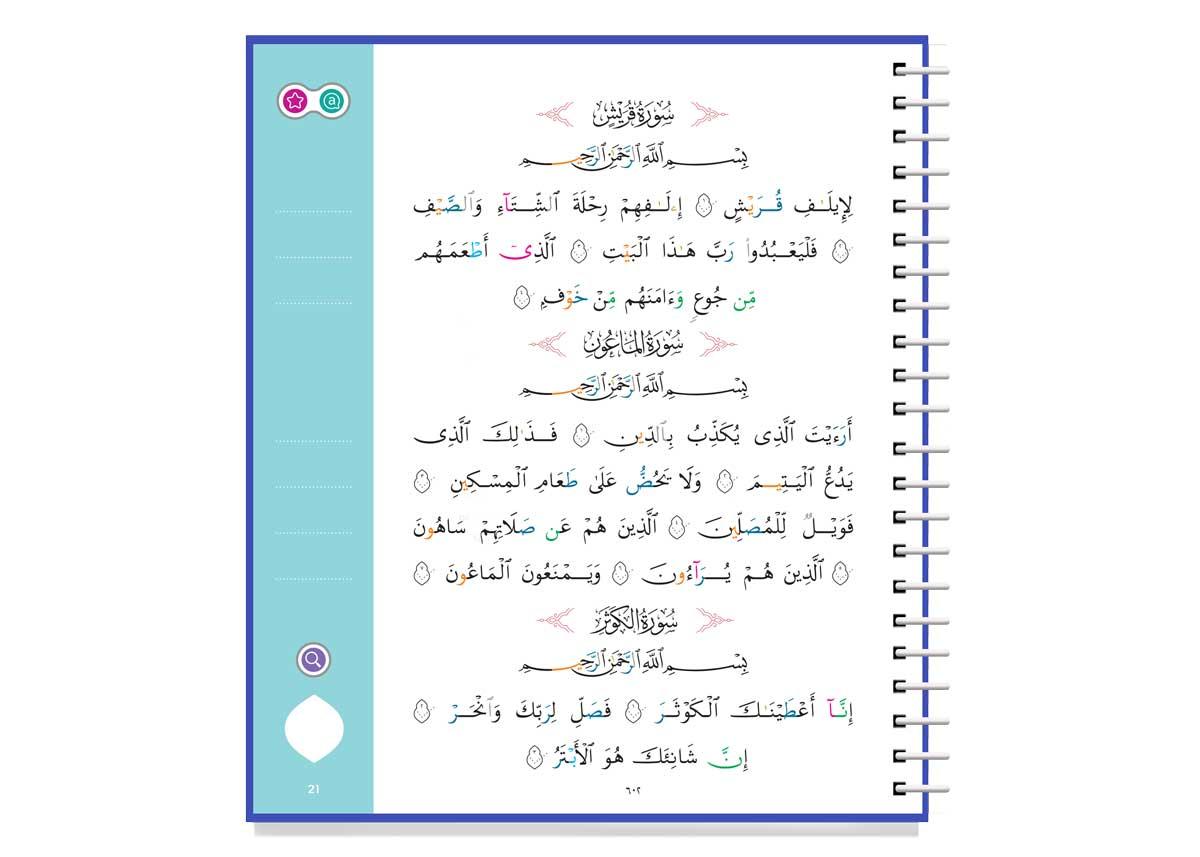 سُورَةُ قُرَيْشٍ
بِسْمِ ٱللَّهِ ٱلرَّحْمَٰنِ ٱلرَّحِيمِ
لِإِيلَـٰفِ قُرَيْشٍ ١ إِۦلَـٰفِهِمْ رِحْلَةَ ٱلشِّتَآءِ وَٱلصَّيْفِ
٢ فَلْيَعْبُدُوا۟ رَبَّ هَـٰذَا ٱلْبَيْتِ ٣ ٱلَّذِىٓ أَطْعَمَهُم
مِّن جُوعٍ وَءَامَنَهُم مِّنْ خَوْفٍ ٤
سُورَةُ المَاعُونِ
بِسْمِ ٱللَّهِ ٱلرَّحْمَٰنِ ٱلرَّحِيمِ
أَرَءَيْتَ ٱلَّذِى يُكَذِّبُ بِٱلدِّينِ ١ فَذَٰلِكَ ٱلَّذِى
يَدُعُّ ٱلْيَتِيمَ ٢ وَلَا يَحُضُّ عَلَىٰ طَعَامِ ٱلْمِسْكِينِ ٣
فَوَيْلٌ لِّلْمُصَلِّينَ ٤ ٱلَّذِينَ هُمْ عَن صَلَاتِهِمْ سَاهُونَ
٥ ٱلَّذِينَ هُمْ يُرَآءُونَ ٦ وَيَمْنَعُونَ ٱلْمَاعُونَ ٧
سُورَةُ الكَوْثَرِ
بِسْمِ ٱللَّهِ ٱلرَّحْمَٰنِ ٱلرَّحِيمِ
إِنَّآ أَعْطَيْنَـٰكَ ٱلْكَوْثَرَ ١ فَصَلِّ لِرَبِّكَ وَٱنْحَرْ ٢
إِنَّ شَانِئَكَ هُوَ ٱلْأَبْتَرُ ٣
٦٠٢
a
21